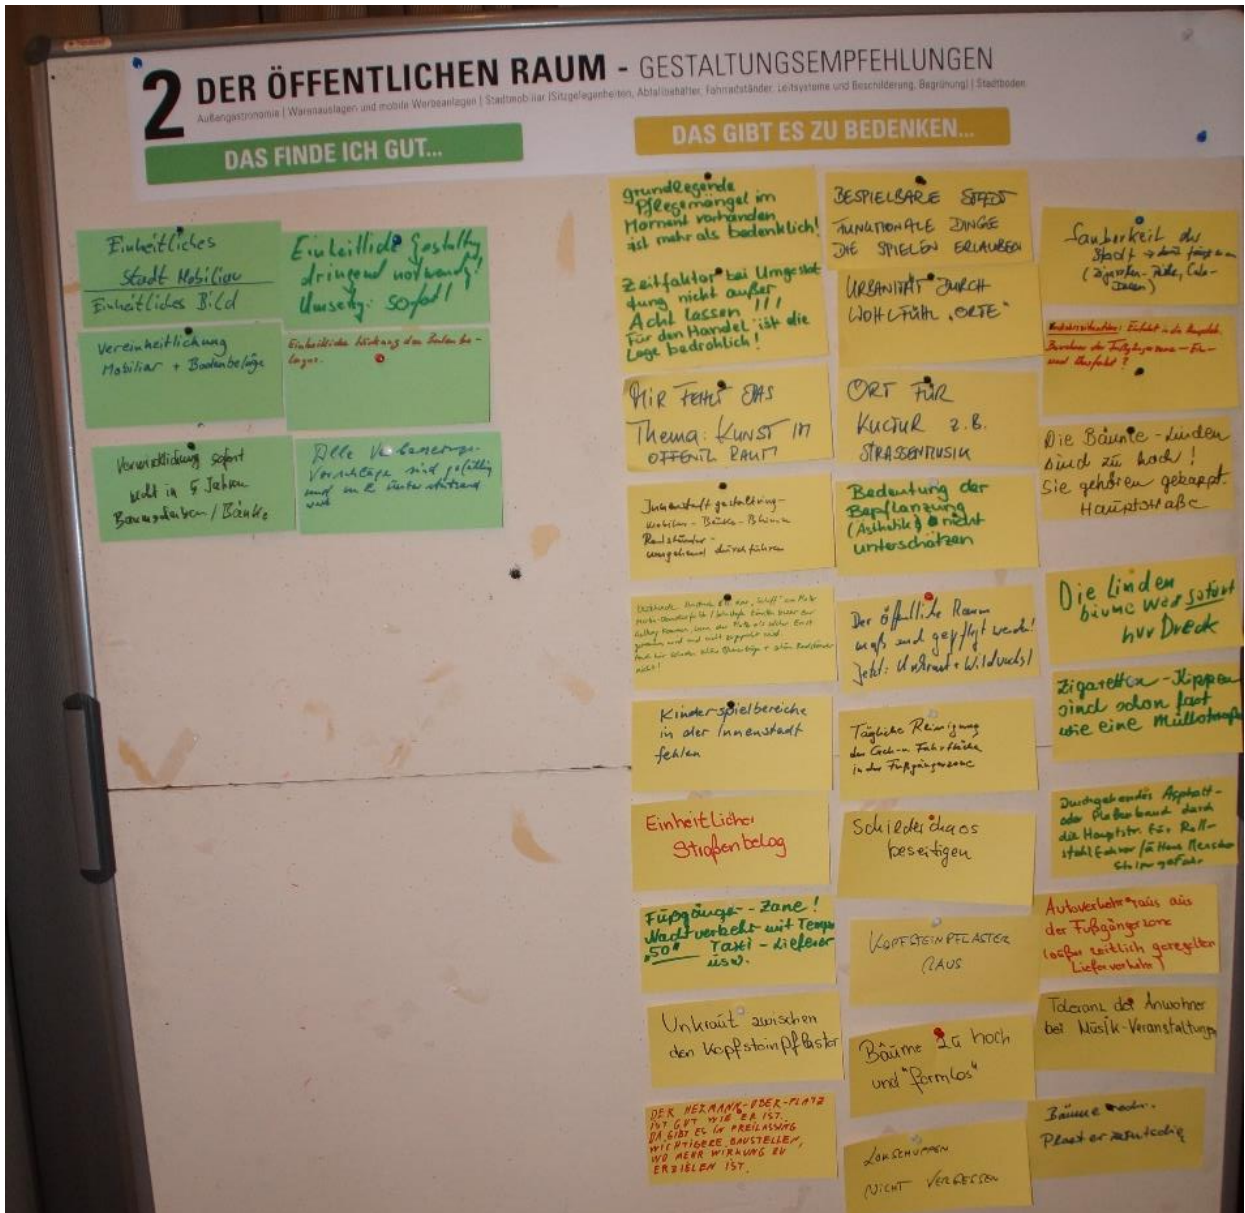 2 DER ÖFFENTLICHEN RAUM - GESTALTUNGSEMPFEHLUNGEN
Außengastronomie | Warenauslagen und mobile Werbeanlagen | Stadtmobiliar (Sitzgelegenheiten, Abfallbehälter, Fahrradständer, Leitsysteme und Beschilderung, Begrünung) | Stadtboden
DAS FINDE ICH GUT...
Einheitliches
Stadt Mobiliar
Einheitliches Bild
Einheitliche Gestaltg
dringend notwendig!
Umsetzg. sofort!
Vereinheitlichung
Mobiliar + Bodenbeläge
Einheitliche
Verwirklichung sofort
nicht in 5 Jahren
Baumscheiben / Bänke
Alle
Vorschläge sind
und
DAS GIBT ES ZU BEDENKEN...
Grundlegende
Pflegemängel im
Moment vorhanden
ist mehr als bedenklich!
Zeitfaktor bei Umgestal
tung nicht außer
Acht lassen !!!
Für den Handel ist die
Lage bedrohlich!
MIR FEHLT DAS
Thema: KUNST IM
ÖFFENTL RAUM
Innenstadtgestaltung-
Mobiliar - Bänke - Blumen
Radständer -
umgehend durchführen
Kinderspielbereiche
in der Innenstadt
fehlen
Einheitlicher
Straßenbelag
Fußgänger-Zone!
Nachtverkehr mit Tempo
"50" Taxi - Lieferer
usw.
Unkraut zwischen
den Kopfsteinpflaster
DER HERMANN-OBER-PLATZ
IST GUT WIE ER IST.
DA GIBT ES IN FREILASSING
WICHTIGERE BAUSTELLEN,
WO MEHR WIRKUNG ZU
ERZIELEN IST.
BESPIELBARE STADT
FUNKTIONALE DINGE
DIE SPIELEN ERLAUBEN
URBANITÄT DURCH
WOHLFÜHL "ORTE"
ORT FÜR
KULTUR z.B.
STRASSENMUSIK
Bedeutung der
Bepflanzung
(Ästhetik) nicht
unterschätzen
Der öffentliche Raum
muß auch gepflegt werden!
Jetzt: Unkraut + Wildwuchs!
Tägliche Reinigung
der Geh-u Fahrfläche
in der Fußgängerzone
Schilderchaos
beseitigen
KOPFSTEINPFLASTER
RAUS
Bäume zu hoch
und "formlos"
LOKSCHUPPEN
NICHT VERGESSEN
Sauberkeit der
Stadt
Die Bäume - Linden
sind zu hoch!
Sie gehören gekappt.
Hauptstraße
Die Linden
bäume weg sofort
nur Dreck
Zigaretten-Kippen
sind schon fast
wie eine Müllstraße
Durchgehendes Asphalt-
oder Plattenband durch
die Hauptstr. für Roll-
stuhlfahrer / ältere Menschen
Stolpergefahr
Autoverkehr raus aus
der Fußgängerzone
(außer zeitlich geregelten
Lieferverkehr)
Toleranz der Anwohner
bei Musik-Veranstaltungen
Bäume